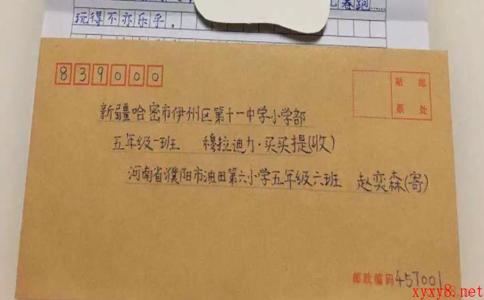 玩得不亦乐乎。
839000
贴 邮
票 处
新疆哈密市伊州区第十一中学小学部
五年级一班 穆拉迪力·买买提(收)
河南省濮阳市油田第六小学五年级六班 赵奕森(寄)
邮政编码 457001
xyxy8.net